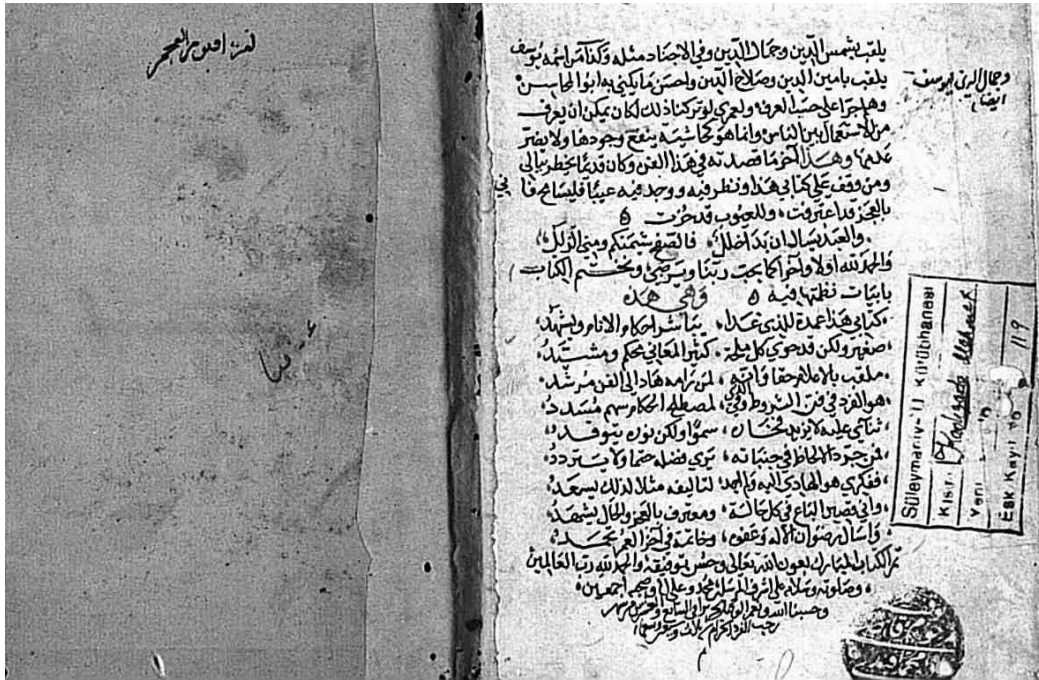 يلقب بشمس الدين وجمال الدين وفي الاجناد مثله وكذا من اسمه يوسف
يلقب بامين الدين وصلاح الدين واحسن ما يكنى به ابو المحاسن
وجمال الدين يوسف
ايضا
وهلم جرا على حسب العرف ولعمري لو تركنا ذلك لكان يمكن ان يعرف
من الاستعمال بين الناس وانما هو كحاشية ينفع وجودها ولا يضر
عدمها وهذا آخر ما قصدته في هذا الفن وكان قديما يخطر ببالي
ومن وقف على كتابي هذا ونظر فيه ووجد فيه عيبا فليسامح فاني
بالعجز قد اعترفت، وللعيوب قد حزت
والعبد يسال ان بدا خلل، فالصفح شيمتكم ومني الزلل
والحمد لله اولا وآخرا كما يحب ربنا ويرضى ونختم الكتاب
بابيات نظمتها فيه وهي هذه
كتابي هذا عمدة للذي غدا، يباشر احكام الانام ويشهد
صغير ولكن قد حوى كل، كثير المعاني محكم ومشيد
ملقب بالاعلام حقا وانه، لمن رامه هاد الى الفن مرشد
هو الفرد في فن الشروط وفي الذي، لمصطلح الحكام سهم مسدد
ثنائي عليه لا يزيد، سموا ولكن نوره يتوقد
فمن جرد الالحاظ في جنباته، يرى فضله حتما ولا يتردد
ففكري هو الهادي اليه ولم اجد، لتاليفه مثلا لذلك يسعد
واني قصير الباع في كل حالة، ومعترف بالعجز والحال يشهد
واسال رضوان الاله وعفوه، وخاتمة في آخر العمر تحمد
تم الكتاب المبارك بعون الله تعالى وحسن توفيقه والحمد لله رب العالمين
وصلوته وسلامه على اشرف المرسلين محمد وعلى آله وصحبه اجمعين
وحسبنا الله ونعم الوكيل السابع والعشرين من شهر
رجب الفرد الحرام
Süleymaniye U Kütübhanesi
Kısmı Kadızade Mehmed
Yeni
Eski Kayıt No 119